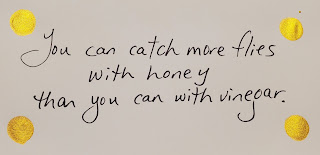 You can catch more flies
with honey
than you can with vinegar.